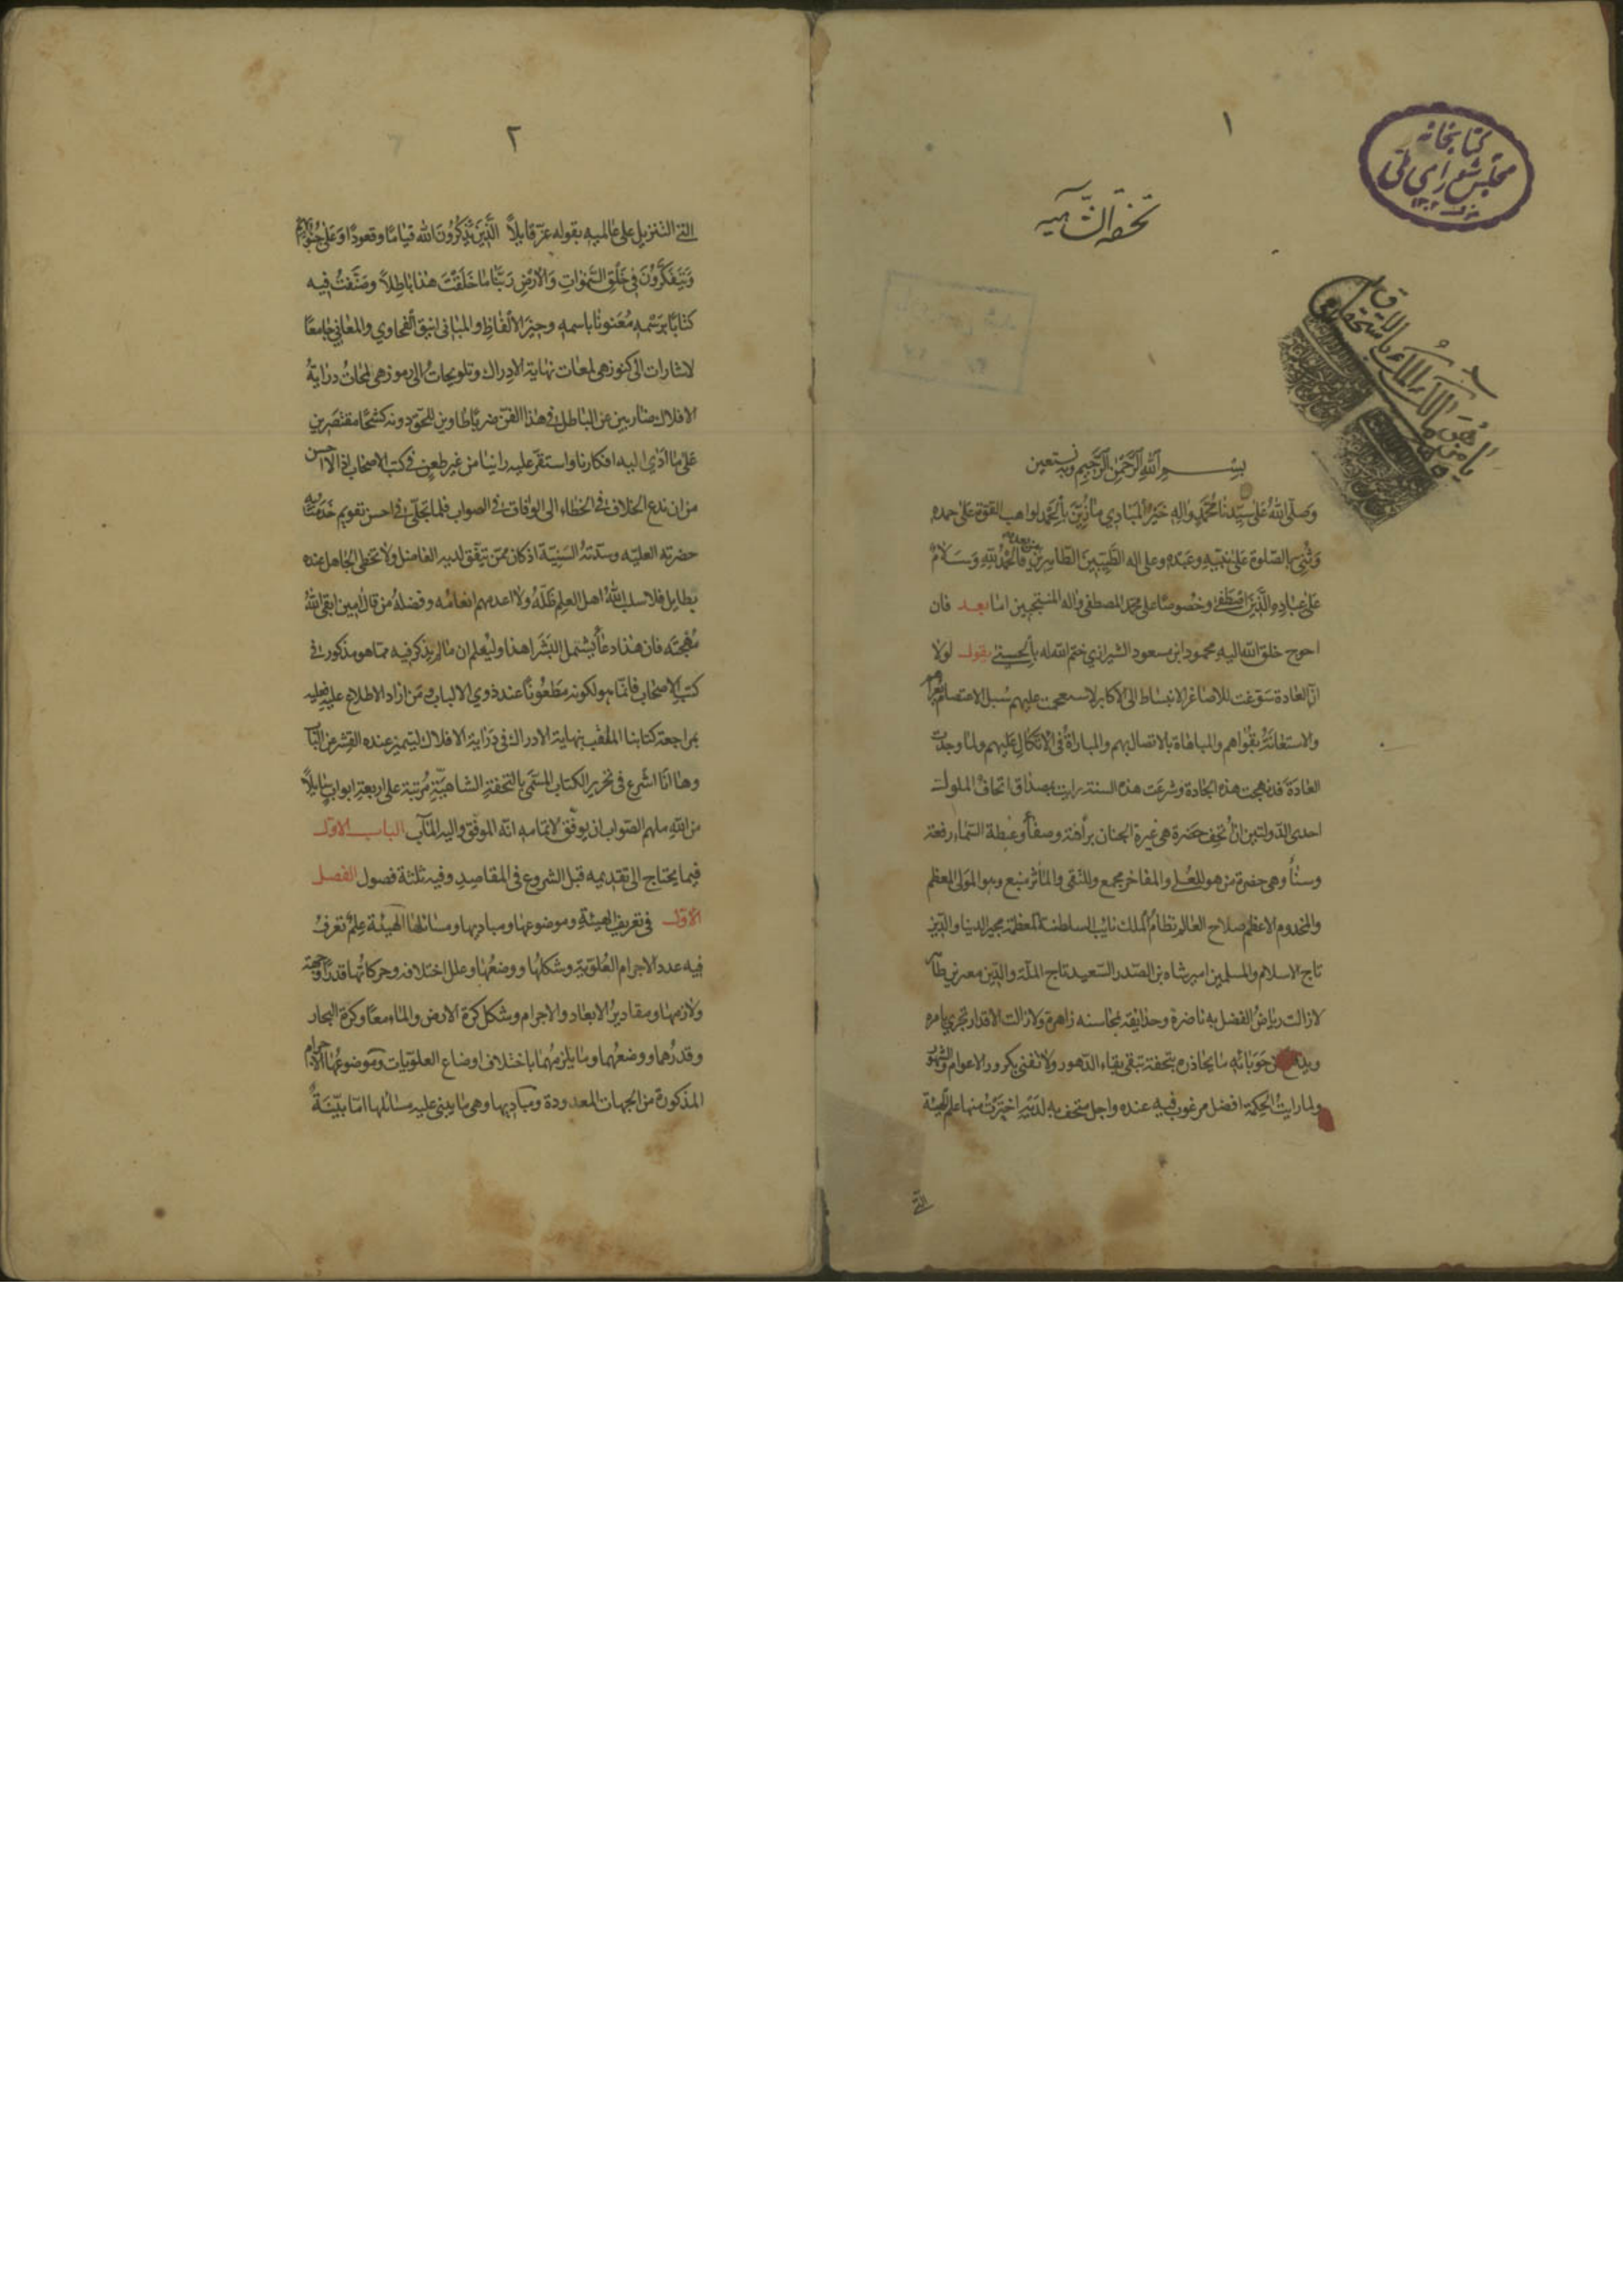 ١
كتابخانه
مجلس شورای ملی
تحفة الشاهية
بسم الله الرحمن الرحيم وبه نستعين
وصلى الله على سيدنا محمد واله خير المبادي ما زين بالحمد لواهب القوة على حمده
وثني بالصلوة على نبيه وعبده وعلى اله الطيبين الطاهرين من بعده فالحمد لله وسلام
على عباده الذين اصطفى وخصوصا على محمد المصطفى واله المنتجبين اما بعد فان
احوج خلق الله اليه محمود ابن مسعود الشيرازي ختم الله له بالحسنى يقول لولا
ان العادة سوغت للاصاغر الانبساط الى الاكابر لاستعجمت عليهم سبل الاعتصام بعراهم
والاستعانة بقواهم والمباهاة بالاتصال بهم والمباراة في الاتكال عليهم ولما وجدت
العادة قد نهجت هذه الجادة وشرعت هذه السنة رايت مصداق اتحاف الملوك
احدى الدولتين ان اتحف حضرة هي غيرة الجنان برأفة وصفاء وغبطة السماء رفعة
وسناء وهي حضرة من هو للعلى والمفاخر مجمع وللتقى والمآثر منبع وهو المولى المعظم
والمخدوم الاعظم صلاح العالم نظام الملك نايب السلطنة المعظمة مجير الدنيا والدين
تاج الاسلام والمسلمين امير شاه بن الصدر السعيد تاج الملة والدين معز بن طاهر
لازالت رياض الفضل به ناضرة وحدايقه بمحاسنه زاهرة ولازالت الاقدار تجري بامره
حوبائه ما يحاذره بتحفة تبقى بقاء الدهور ولا تفنى بكرور الاعوام والشهور
ولما رايت الحكمة افضل مرغوب فيه عنده واجل متحف به لديه اخترت منها علم الهيئة
التي
٢
التي التنزيل على عالميه بقوله عز قايلا الذين يذكرون الله قياما وقعودا وعلى جنوبهم
ويتفكرون في خلق السموات والارض ربنا ما خلقت هذا باطلا وصنفت فيه
كتابا برسمه معنونا باسمه وجيز الالفاظ والمباني انيق الفحاوي والمعاني جامعا
لاشارات الى كنوز هي لمعات نهاية الادراك وتلويحات الى رموز هي لمحات دراية
الافلاك ضاربين عن الباطل في هذا الفن ضربا طاوين للحق دونه كشحا مقتصرين
على ما ادى اليه افكارنا واستقر عليه راينا من غير طعن في كتب الاصحاب اذ الاحسن
من ان ندع الخلاف في الخطاء الى الوفاق في الصواب فلما تجلى في احسن تقويم خدمت به
حضرته العلية وسدته السنية اذ كان ممن يتفق لديه الفاضل ولا تحظى الجاهل عنده
بطايل فلا سلب الله اهل العلم ظله ولا اعدمهم انعامه وفضله من قال امين ابقى الله
مهجته فان هذا دعاء يشمل البشرا هذا وليعلم ان ما لم يذكر فيه مما هو مذكور في
كتب الاصحاب فانما هو لكونه مطعونا عند ذوي الالباب ومن اراد الاطلاع عليه فعليه
بمراجعة كتابنا الملقب بنهاية الادراك في دراية الافلاك ليتميز عنده القشر عن اللباب
وها انا اشرع في تحرير الكتاب المسمى بالتحفة الشاهية مرتبة على اربعة ابواب سايلا
من الله ملهم الصواب ان يوفق لاتمامه انه الموفق واليه المآب الباب الاول
فيما يحتاج الى تقديمه قبل الشروع في المقاصد وفيه ثلثة فصول الفصل
الاول في تعريف الهيئة وموضوعها ومباديها ومسائلها الهيئة علم تعرف
فيه عدد الاجرام العلوية وشكلها ووضعها وعلل اختلافه وحركاتها قدرا وجهة
ولازمها ومقادير الابعاد والاجرام وشكل كرة الارض والماء معا وكرة البحار
وقدرهما ووضعهما وما يلزمهما باختلاف اوضاع العلويات وموضوعها الاجرام
المذكورة من الجهات المعدودة ومباديها وهي ما يبنى عليه مسائلها اما بينة